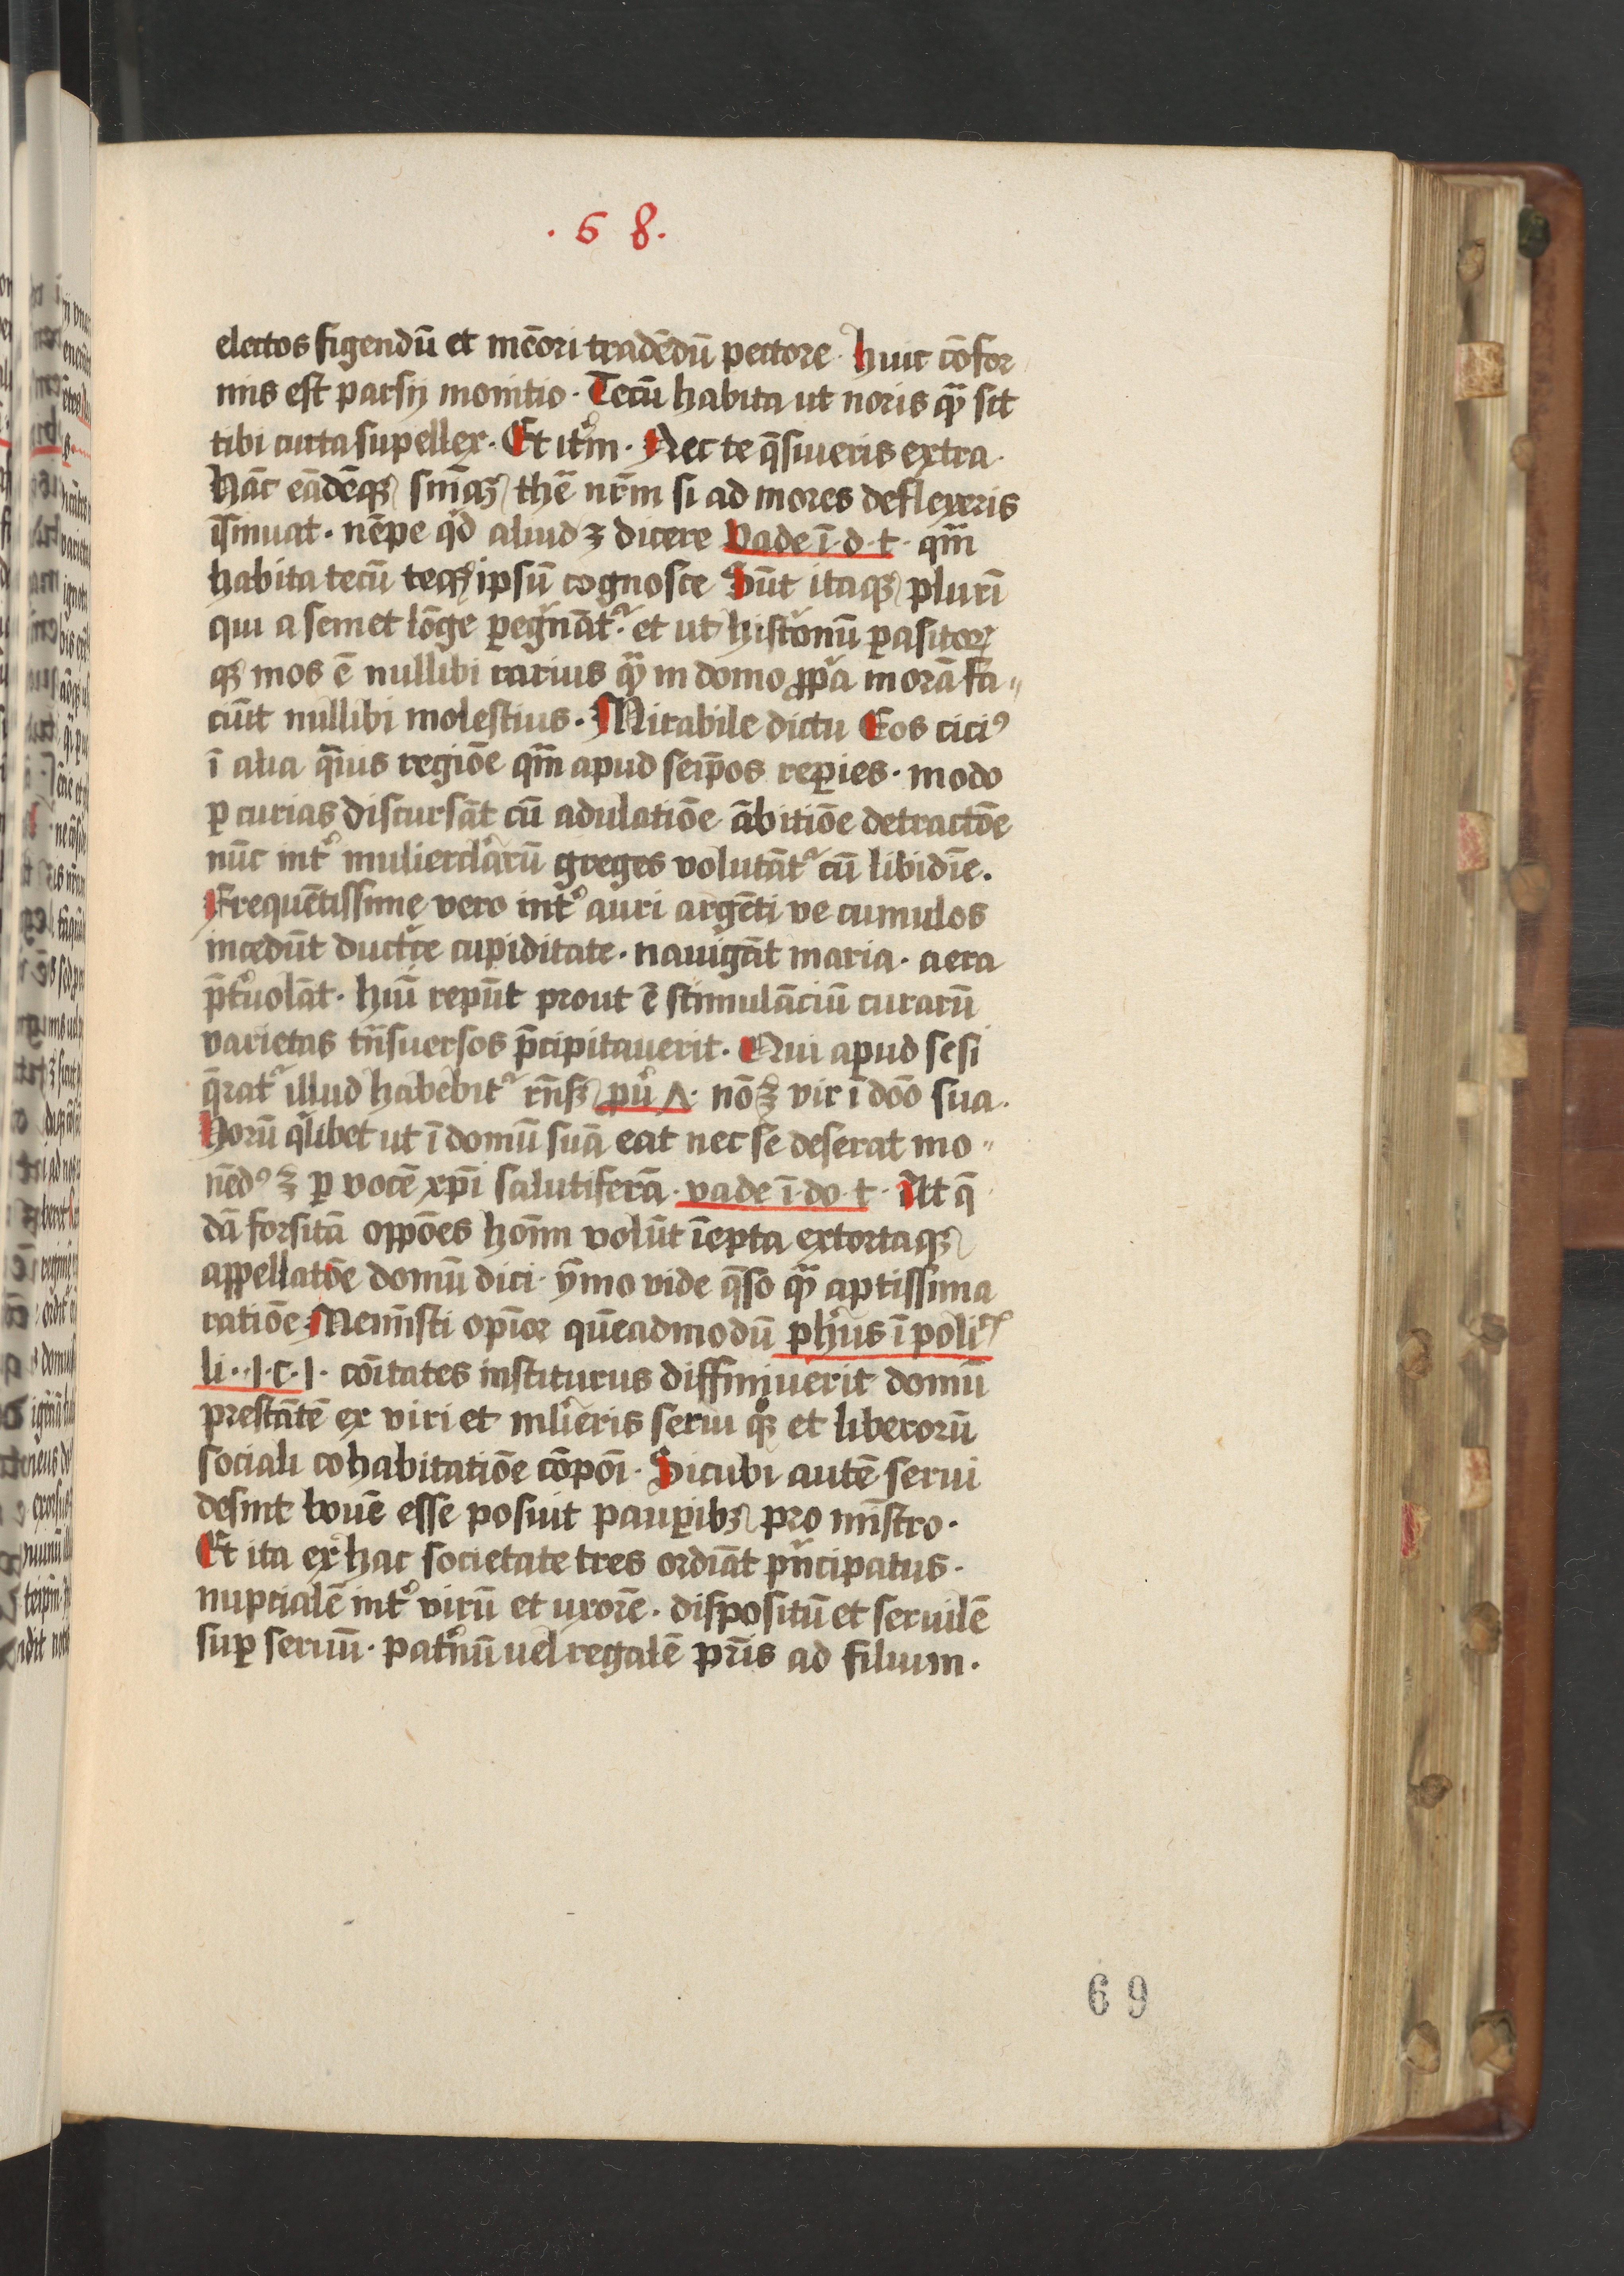 . 6 8.
electos figendū et mēori tradēdū pectore · huic cōfor
mis est parsij monitio · Tecū habita ut noris qᷓ sit
tibi curta supellex · Et itm̄ · Nec te q̄siueris extra ·
hāc eādēqȝ smāqȝ thē nr̄m si ad mores deflexeris
īsinuat · nēpe qd̓ aliud ȝ dicere vade ī · d · t · qm̄
habita tecū teqȝ ipsū cognosce Sūt itaqȝ plurī
qui a semet lōge ꝑegn̓āt᷑ · et ut histōnū ꝑasitoꝝ
qȝ mos ē nullibi rarius qᷓ in domo ꝓp̓a morā fa〃
ciūt nullibi molestius · Mirabile dictu Eos ciciꝰ
ī alia qᷓuis regiōe qm̄ apud seip̄os reꝑies · modo
ꝑ curias discursāt cū adulatiōe ābitiōe detractōe
nūc int̓ mulierclarū greges volutāt᷑ cū libidīe ·
Frequētissime vero int̓ auri argēti ve cumulos
incedūt ductce cupiditate · nauigāt maria · aera
p̄t̓uolāt · hiū repūt prout ē stimulāciū curarū
varietas tn̄suersos p̄cipitauerit · Qui apud se si
q̄rat᷑ illud habebit᷑ rn̄sȝ pu̓ Λ · nō ȝ̄ vir ī dōo sua ·
Horū qlibet ut ī domū suā eat nec se deserat mo〃
nēdꝰ ȝ̄ ꝑ vocē xp̄i salutiferā · vade ī · do · t · At q̄
dā forsitā oppōes hoīm volūt īepta extortaqȝ
appellatōe domū dici · ȳmo vide q̄so qᷓ aptissima
ratiōe Memīsti opīor quēadmodū ph̓us ī poli᷑
li · · 1 · c · 1 · cōitates institurus diffiniuerit domū
prestātē ex viri et ml̓ieris serui qȝ et liberorū
sociali cohabitatiōe cōpoī · Sicubi autē serui
desint bouē esse posuit pauꝑibȝ pro mīstro ·
Et ita ex hac societate tres ordīat pn̓cipatus ·
nuptialē int̓ virū et uxorē · dispositū et seruilē
suꝑ seruū · pat̓nū uel regalē pr̄is ad filium ·
69